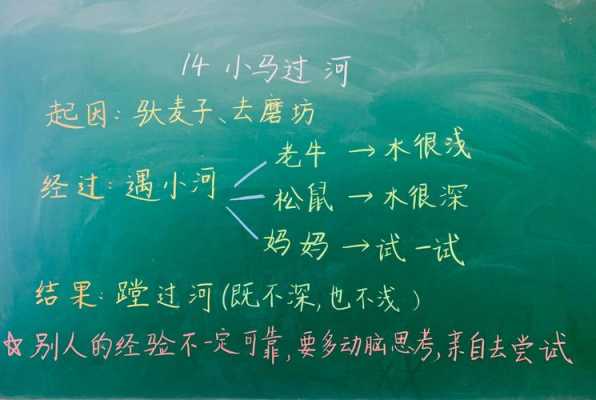 14 小马过河
起因：驮麦子、去磨坊
老牛 → 水很浅
经过：遇小河 松鼠 → 水很深
妈妈 → 试一试
结果：蹚过河(既不深,也不浅)
☆别人的经验不一定可靠,要多动脑思考,亲自去尝试